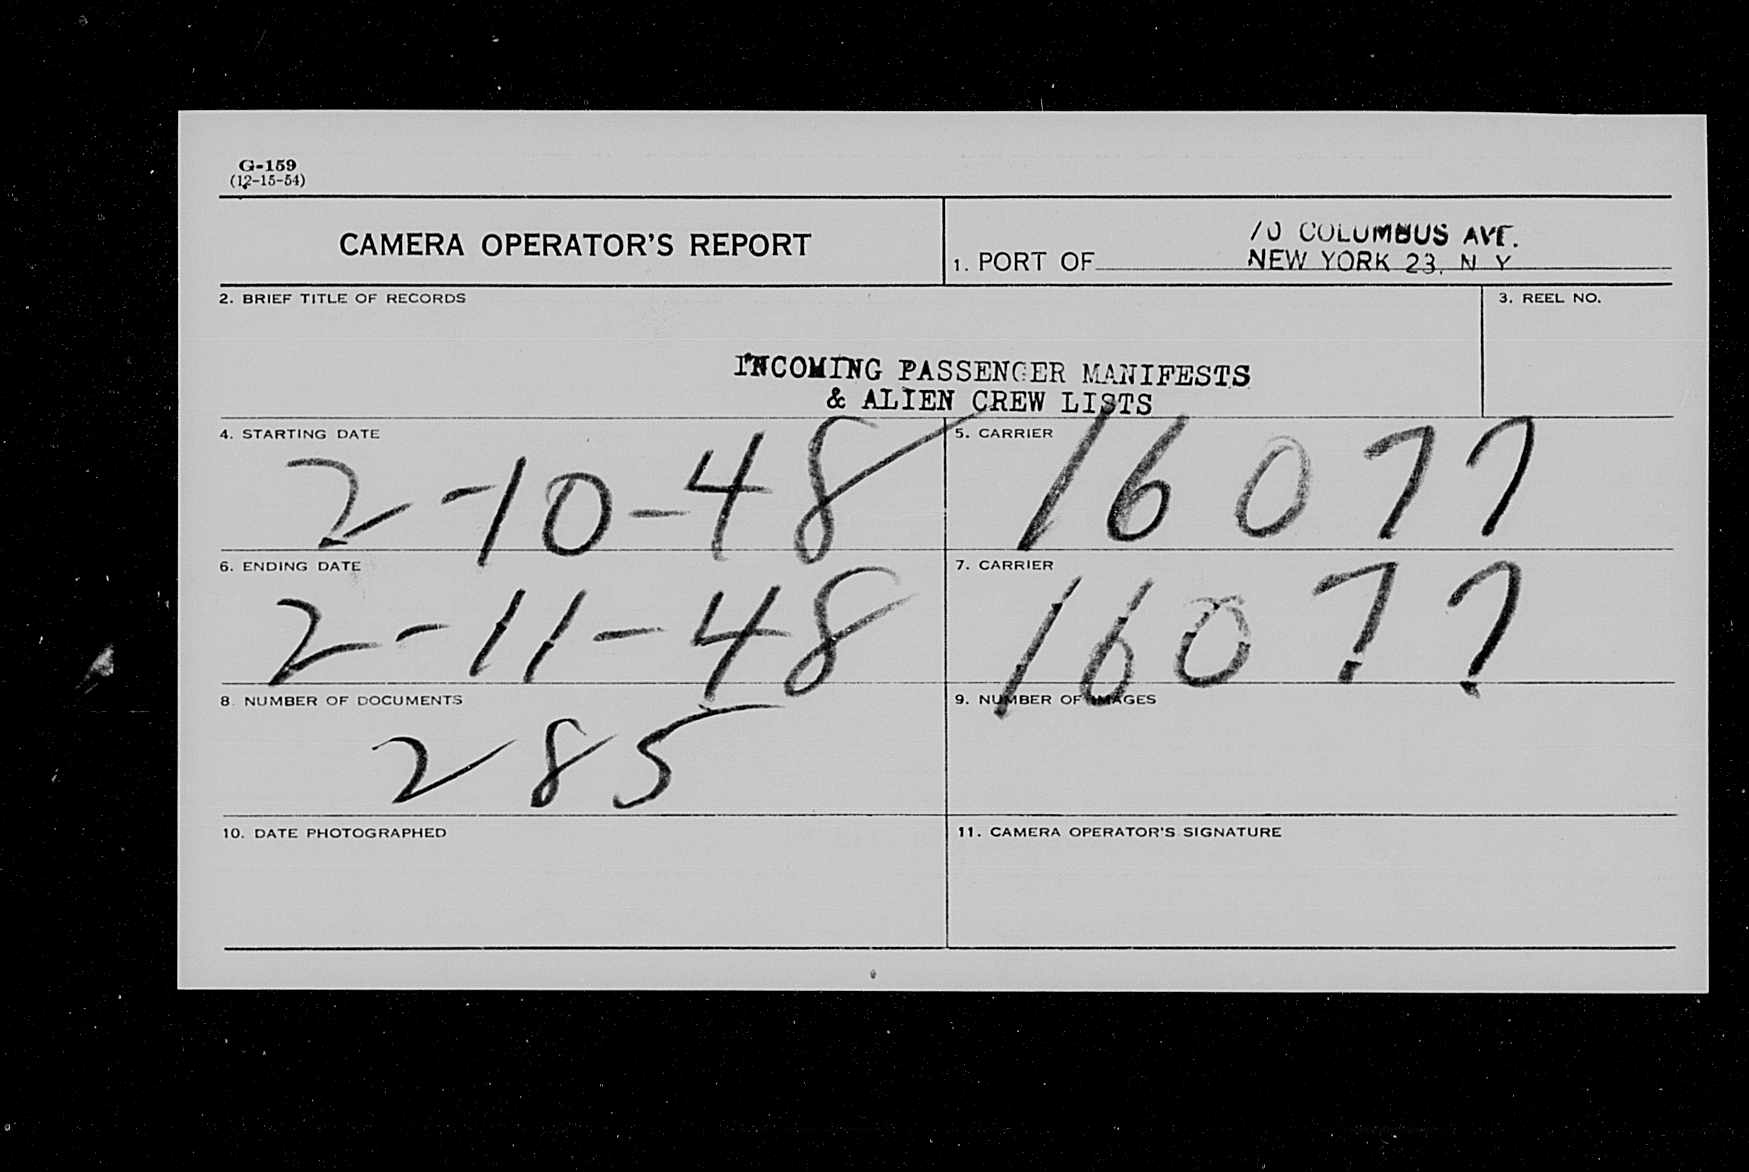 G-159
(12-15-54)
CAMERA OPERATOR'S REPORT
1. PORT OF
70 COLUMBUS AVE.
NEW YORK 23, N Y
2. BRIEF TITLE OF RECORDS
3. REEL NO.
INCOMING PASSENGER MANIFESTS
& ALIEN CREW LISTS
4. STARTING DATE
2-10-48
5. CARRIER
16077
6. ENDING DATE
2-11-48
7. CARRIER
16077
8 NUMBER OF DOCUMENTS
285
9. NUMBER OF IMAGES
10. DATE PHOTOGRAPHED
11. CAMERA OPERATOR'S SIGNATURE